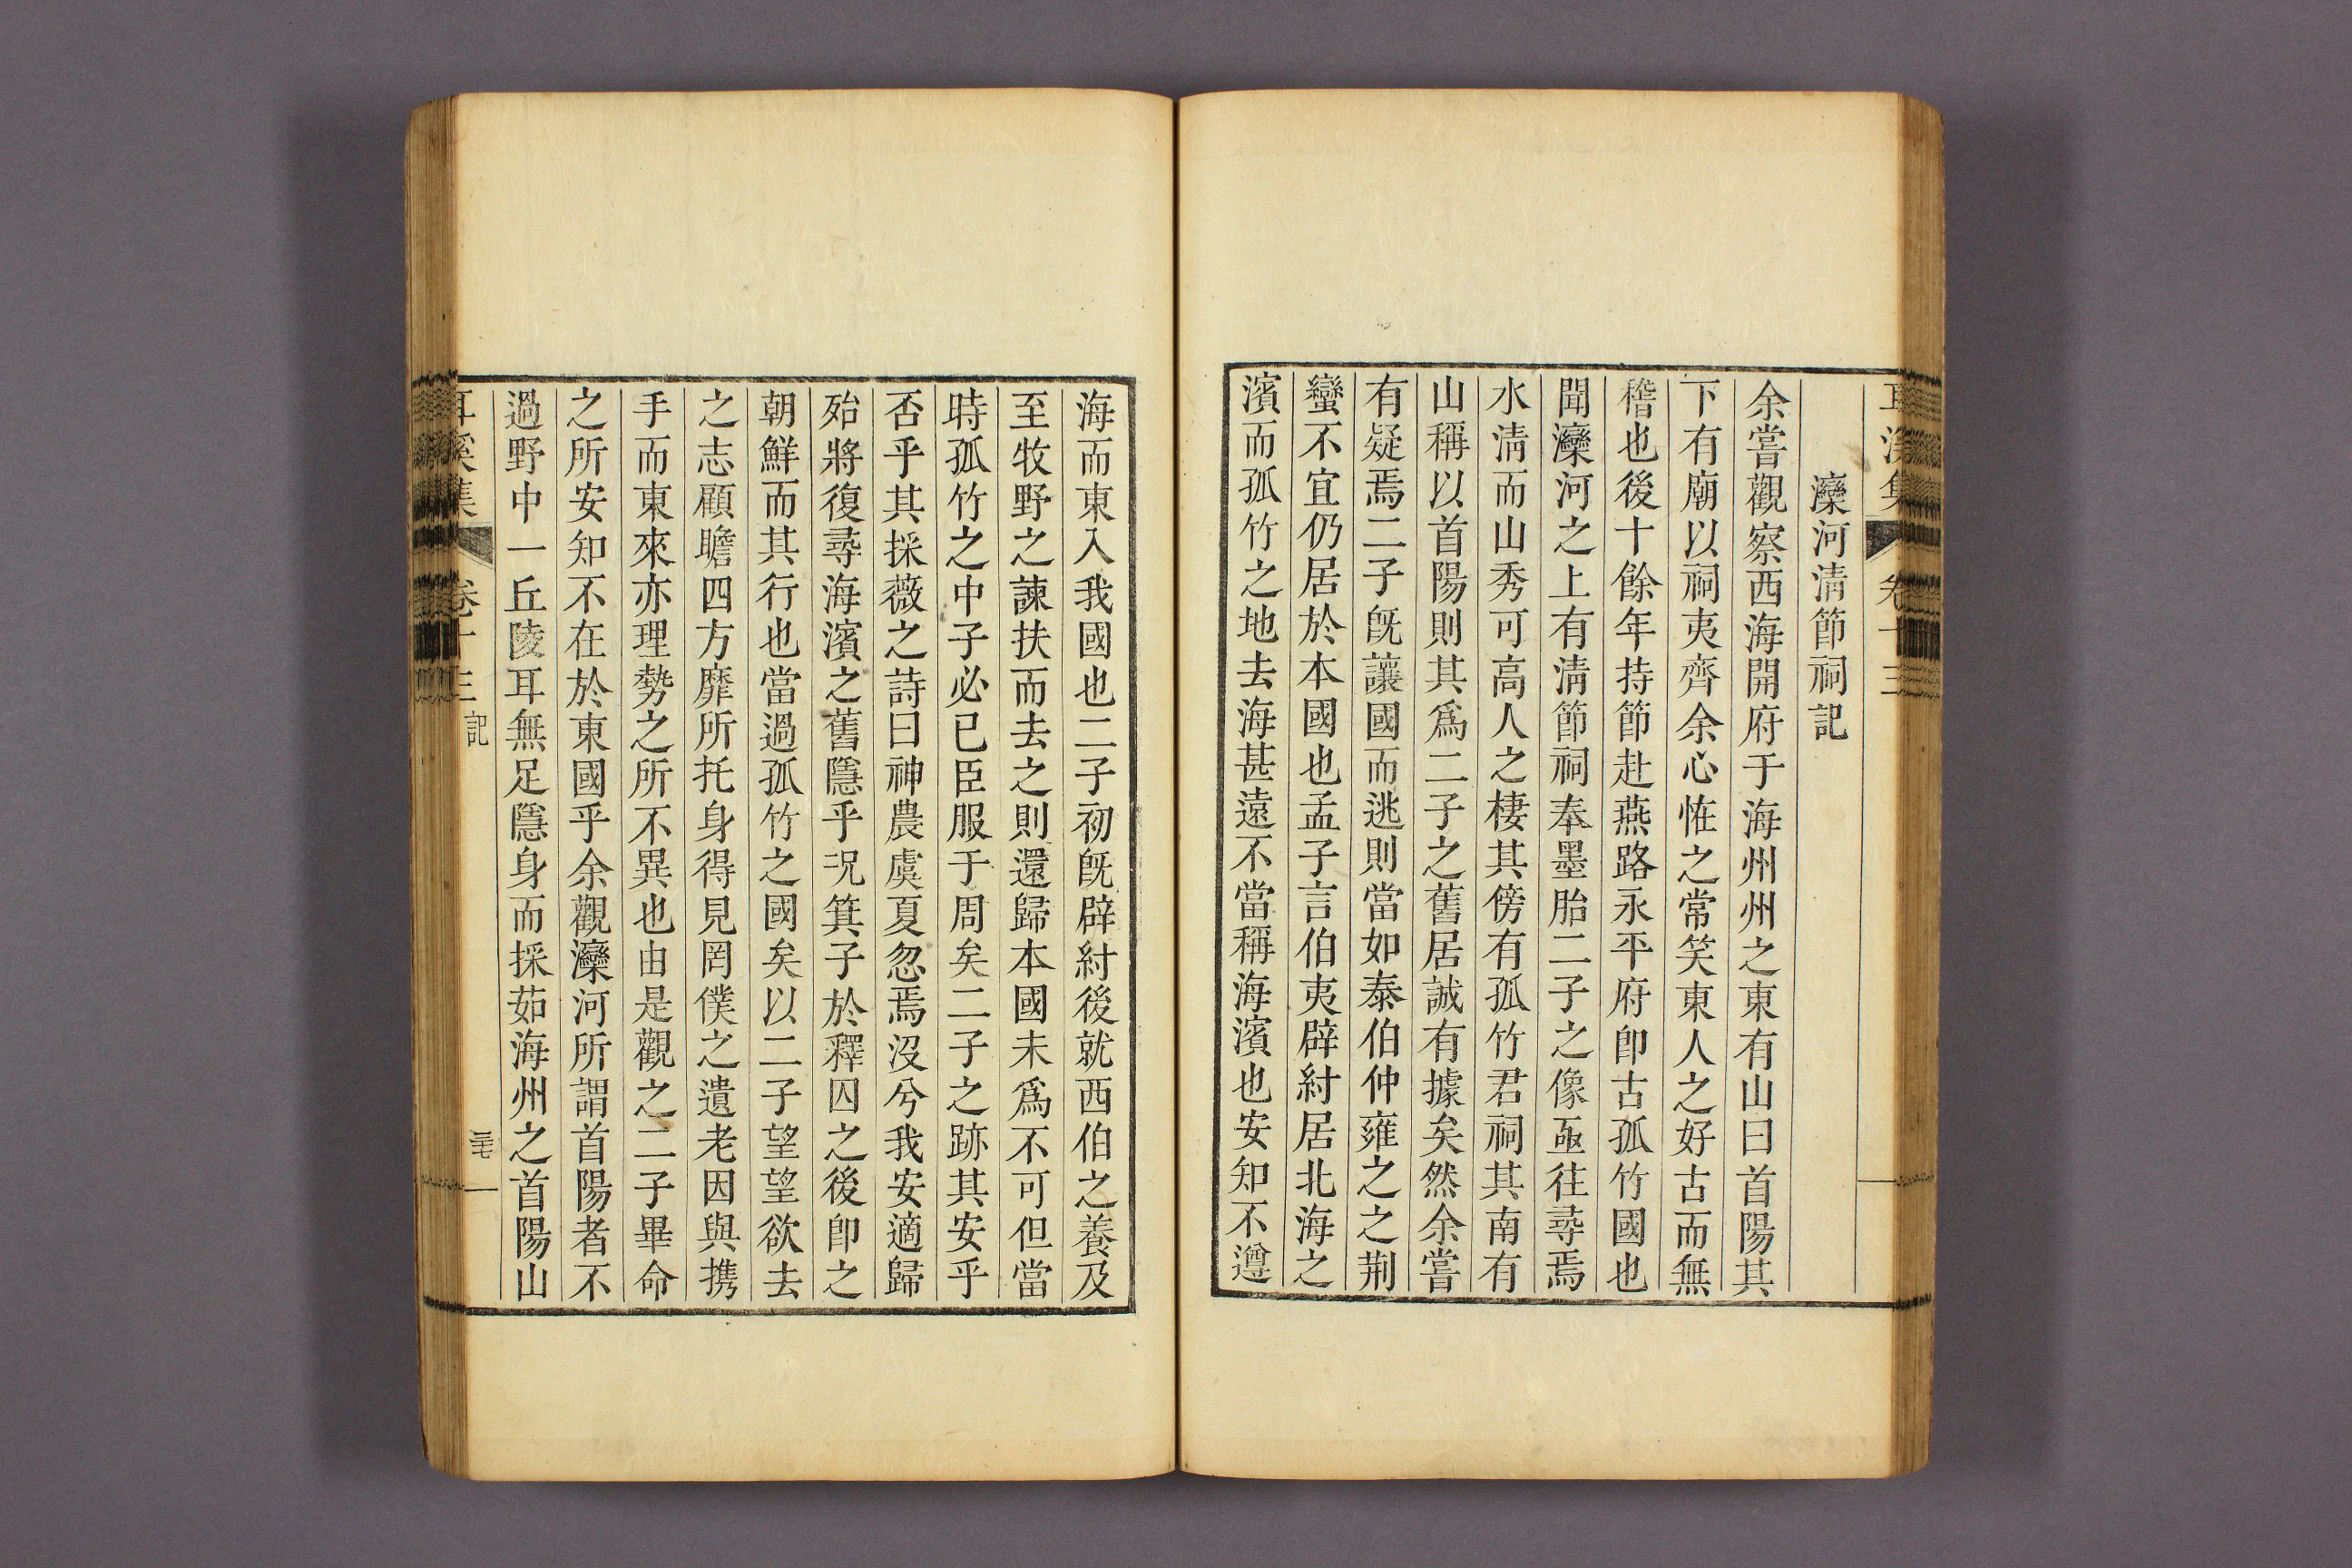 耳溪集 卷十三
灤河淸節祠記
余嘗觀察西海開府于海州州之東有山曰首陽其
下有廟以祠夷齊余心恠之常笑東人之好古而無
稽也後十餘年持節赴燕路永平府卽古孤竹國也
聞灤河之上有淸節祠奉墨胎二子之像亟往尋焉
水淸而山秀可高人之棲其傍有孤竹君祠其南有
山稱以首陽則其爲二子之舊居誠有據矣然余嘗
有疑焉二子旣讓國而逃則當如泰伯仲雍之之荆
蠻不宜仍居於本國也孟子言伯夷辟紂居北海之
濱而孤竹之地去海甚遠不當稱海濱也安知不遵
海而東入我國也二子初旣辟紂後就西伯之養及
至牧野之諫扶而去之則還歸本國未爲不可但當
時孤竹之中子必已臣服于周矣二子之跡其安乎
否乎其採薇之詩曰神農虞夏忽焉沒兮我安適歸
殆將復尋海濱之舊隱乎况箕子於釋囚之後卽之
朝鮮而其行也當過孤竹之國矣以二子望望欲去
之志顧瞻四方靡所托身得見罔僕之遺老因與携
手而東來亦理勢之所不異也由是觀之二子畢命
之所安知不在於東國乎余觀灤河所謂首陽者不
過野中一丘陵耳無足隱身而採茹海州之首陽山
耳溪集 卷十三 記